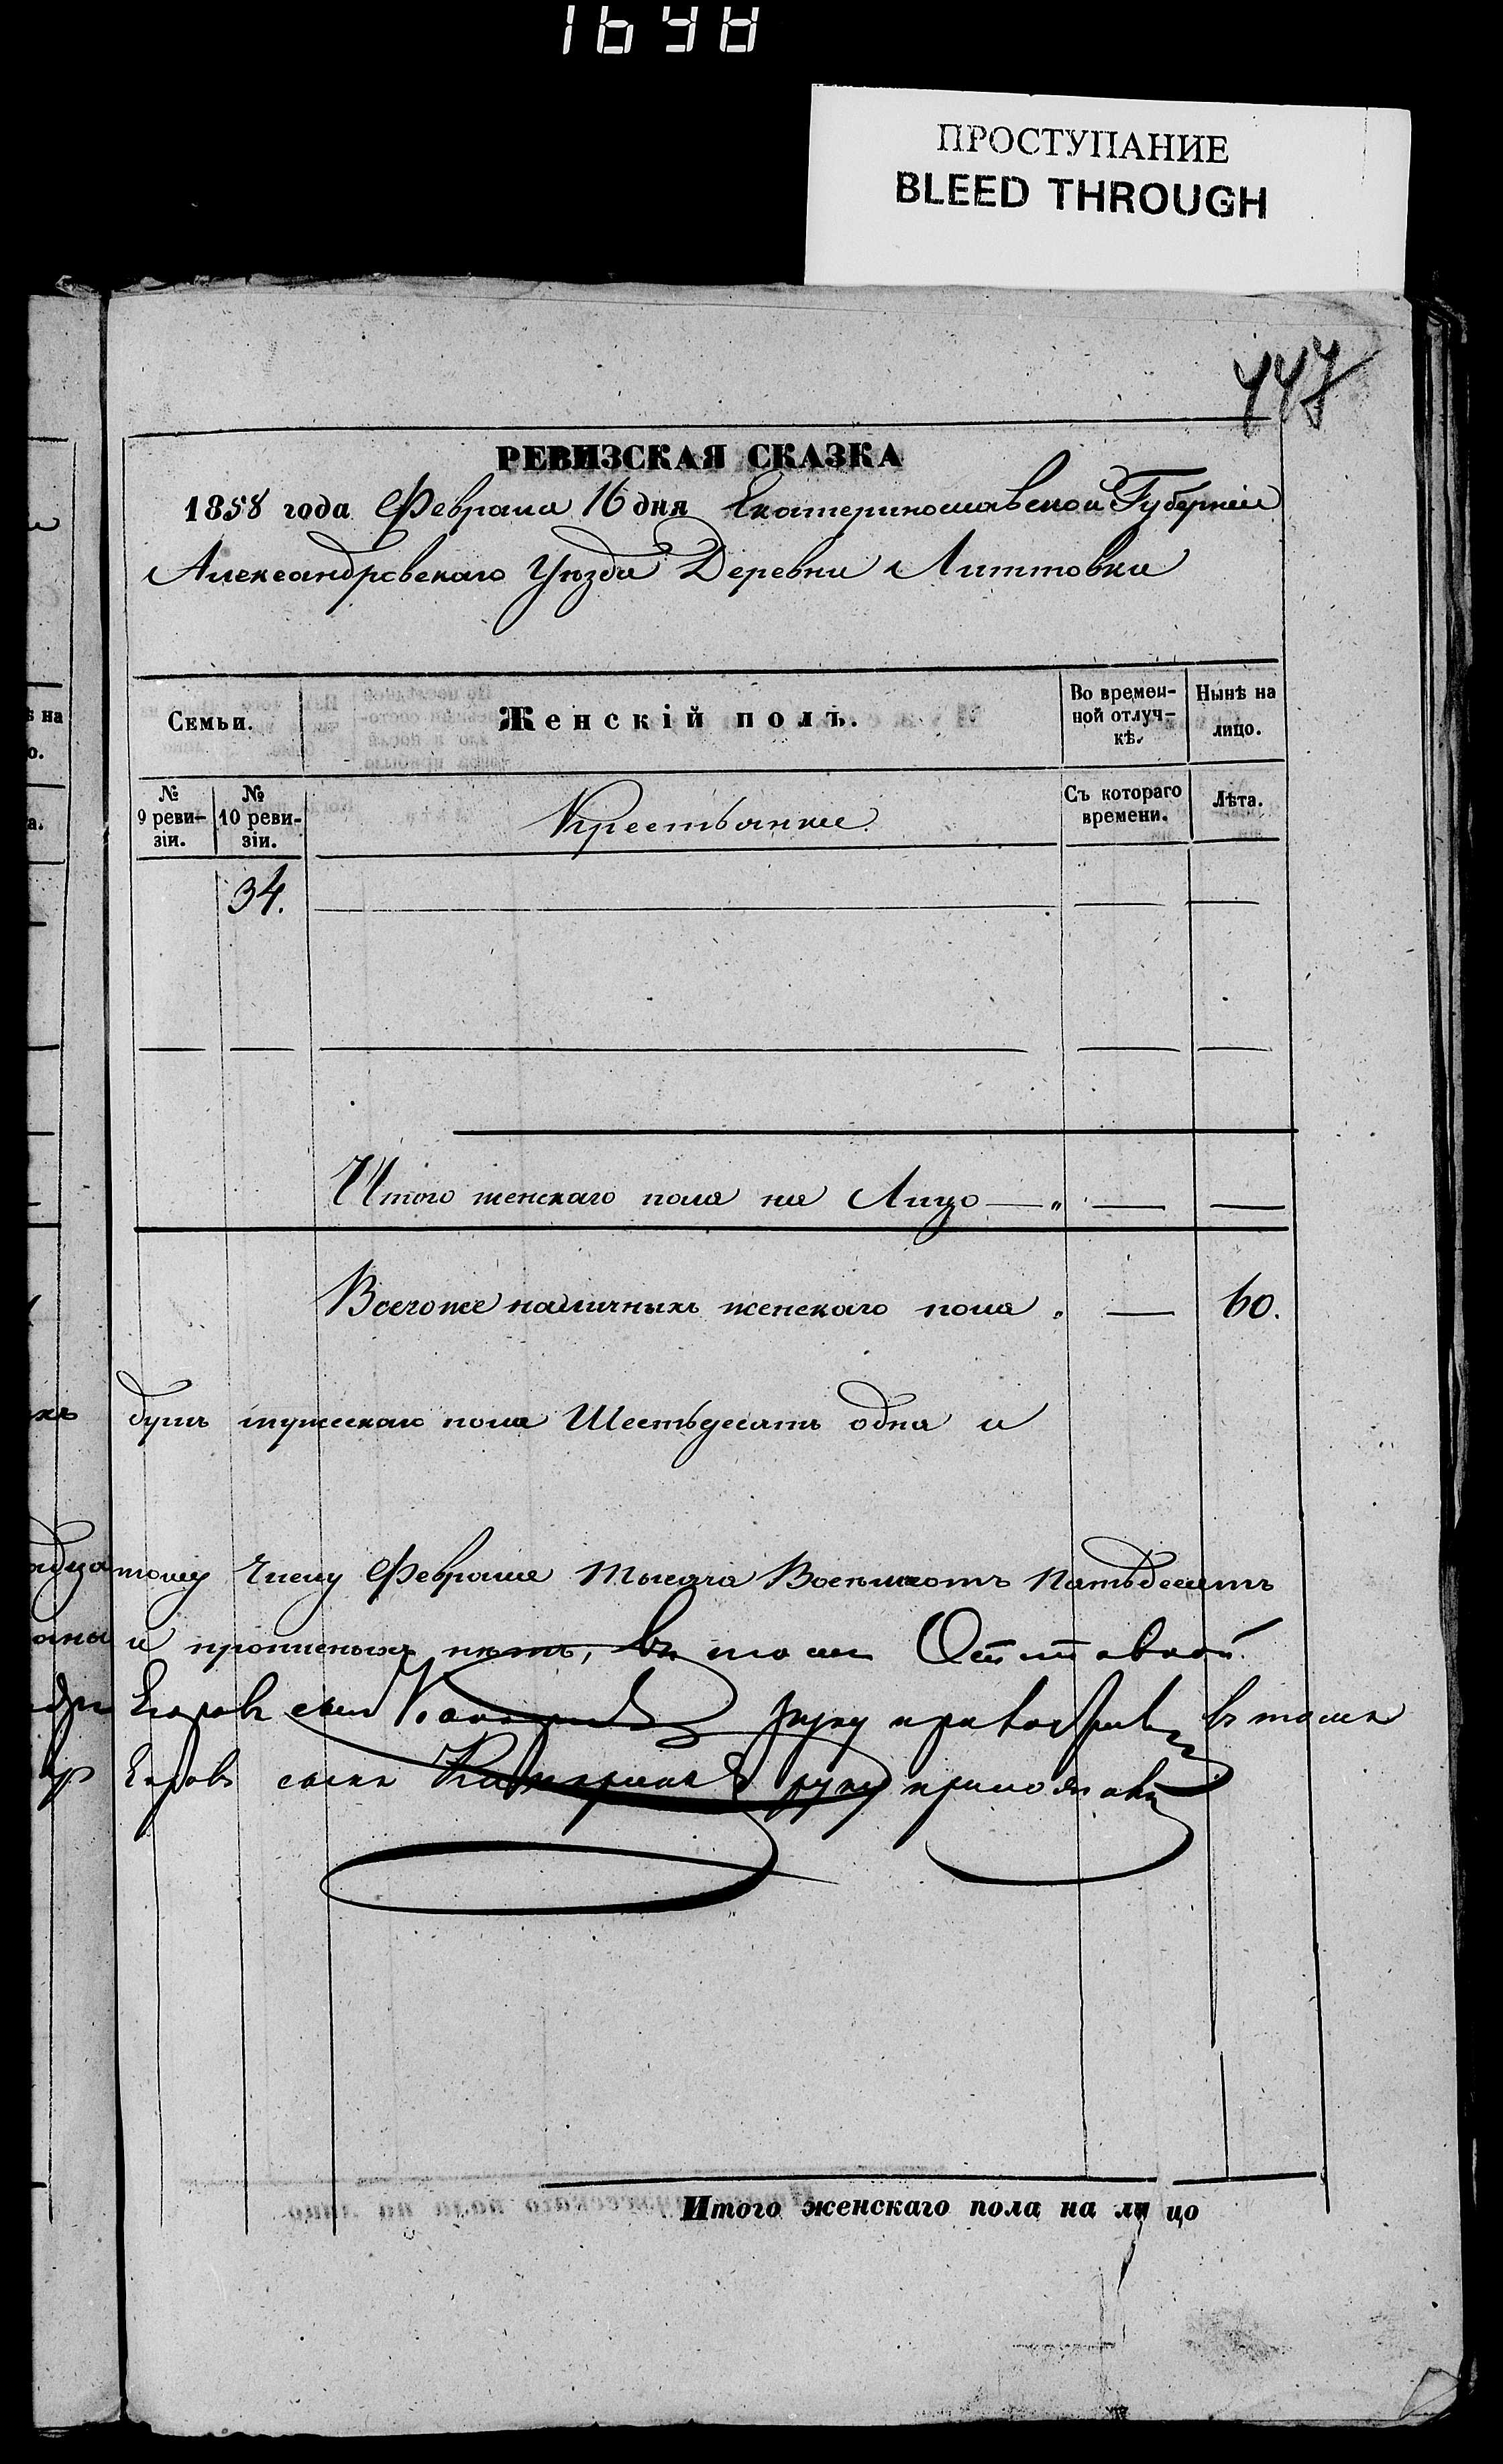 1648
ПРОСТУПАНИЕ
BLEED THROUGH
447
РЕВИЗСКАЯ СКАЗКА
1858 года Февраля 16 дня Екатеринославской Губерніи
Александровскаго Уѣзда Деревни Литтовки
Семьи.
Женскій полъ.
Во времен-
ной отлуч-
кѣ.
Нынѣ на
лицо.
№
9 реви-
зіи.
№
10 реви-
зіи.
Крестьянки
Съ котораго
времени.
Лѣта.
34.
Итого женскаго пола на Лицо — „ — —
Всегоже наличныхъ женскаго пола „ — 60.
душъ мужескаго пола Шестьдесятъ одна и
тому Числу Февраля Тысяча Восемьсотъ Пятьдесятъ
и прописныхъ нѣтъ, въ томъ
Егоровъ сынъ руку приложилъ въ томъ
Егоровъ сынъ руку приложилъ
Итого женскаго пола на лицо